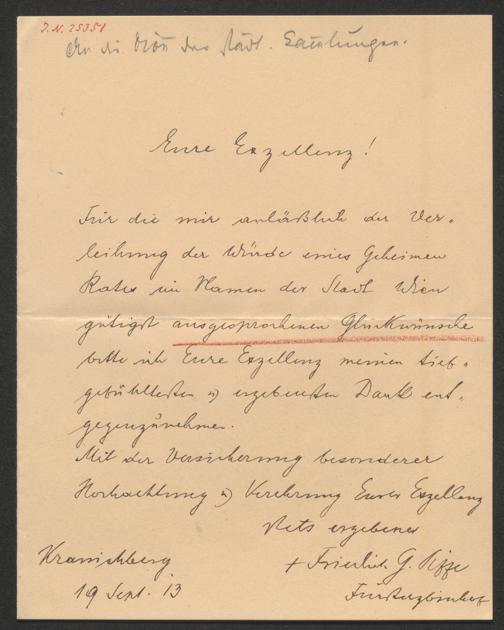 J.N. 25351
An die Dion der städt. Sammlungen.
Eure Exzellenz!
Für die mir anläßlich der Ver-
leihung der Würde eines Geheimen
Rates im Namen der Stadt Wien
gütigst ausgesprochenen Glückwünsche
bitte ich Eure Exzellenz meinen tief-
gefühltesten u ergebensten Dank ent-
gegenzunehmen.
Mit der Versicherung besonderer
Hochachtung u Verehrung Eurer Exzellenz
stets ergebener
Kranichberg
+ Friedrich G. Piffl
19 Sept. 13
Fürsterzbischof